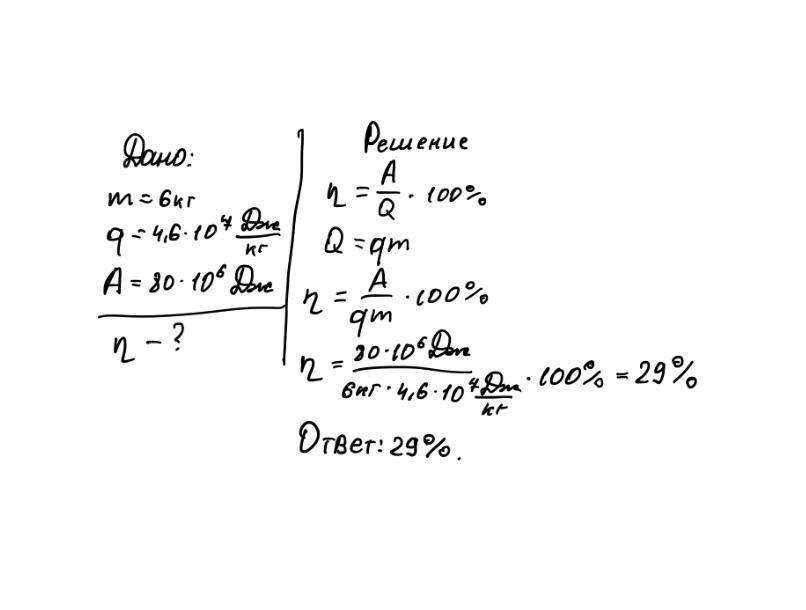 Дано:
m = 6кг
q = 4,6 · 10⁷ Дж/кг
A = 80 · 10⁶ Дж
η - ?
Решение
η = A/Q · 100%
Q = qm
η = A/qm · 100%
η = 80·10⁶Дж / 6кг · 4,6 · 10⁷ Дж/кг · 100% = 29%
Ответ: 29%.